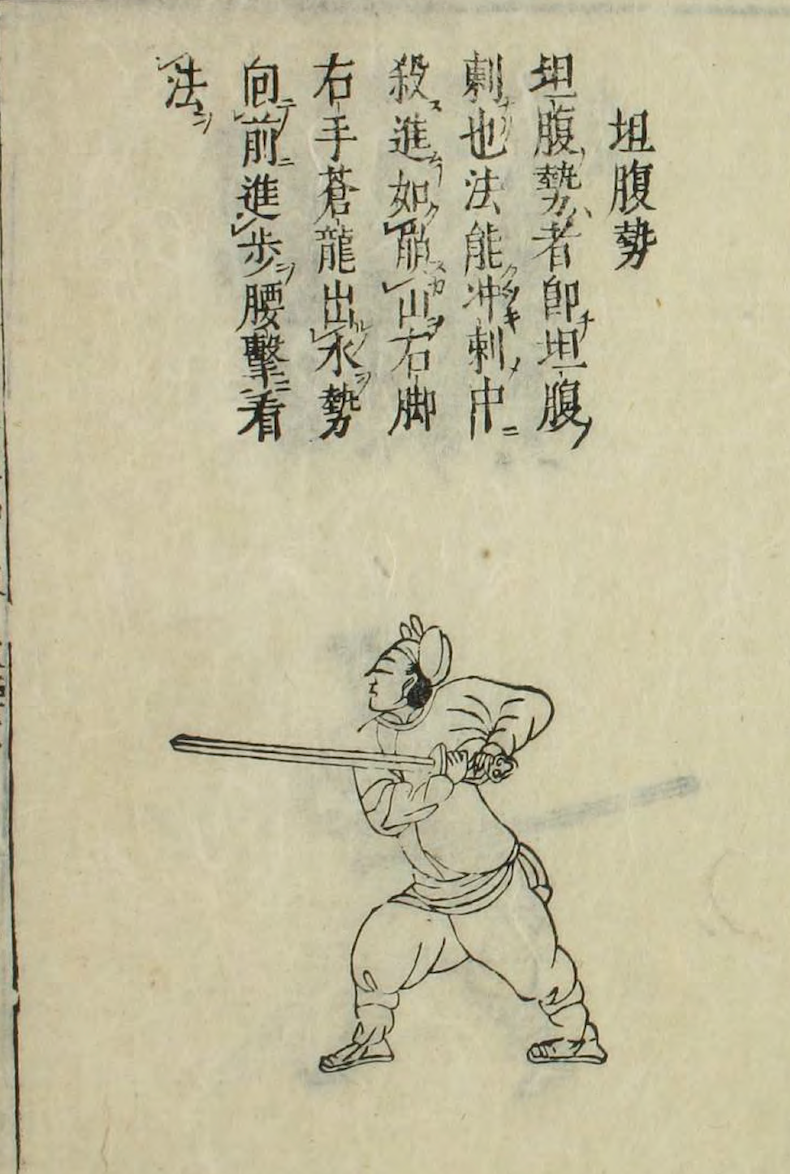 坦腹勢
坦腹勢者即坦腹
刺也法能冲刺中
殺進如崩山右脚
右手蒼龍出水勢
向前進步腰擊看
法